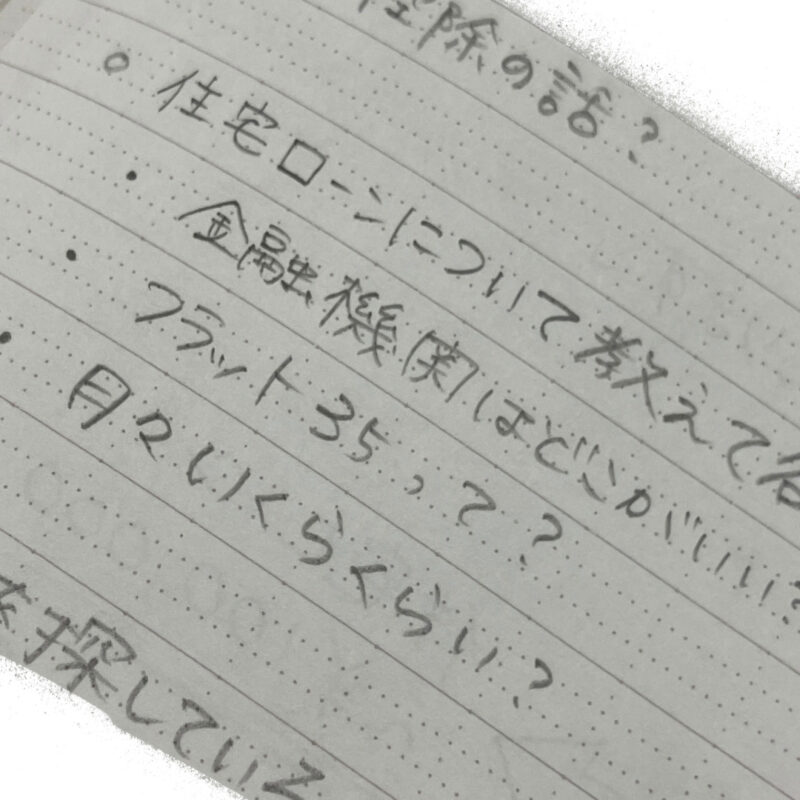 控除の話?
○ 住宅ローンについて教えて
・金融機関はどこがいい?
・フラット35って?
・月々いくらくらい?
探している